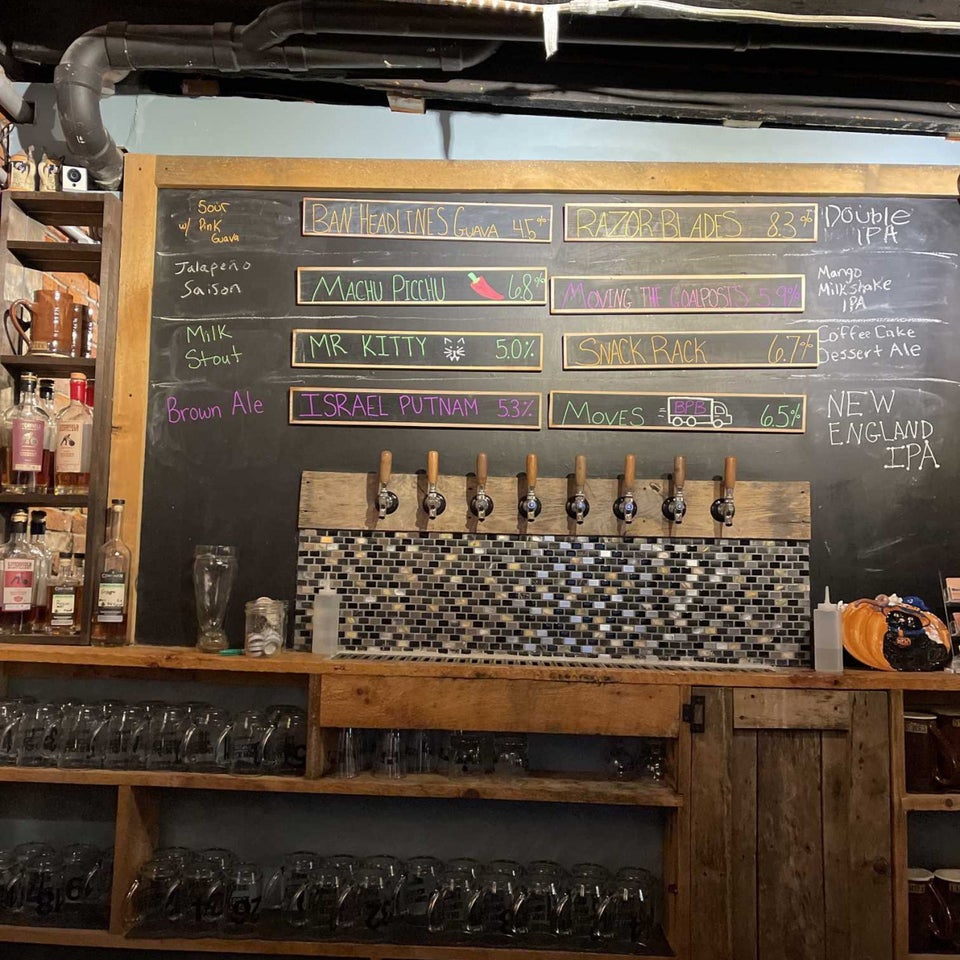 Sour
w/ Pink
Guava
BAN HEADLINES GUAVA 4.5%
RAZOR-BLADES 8.3%
DOUBLE
IPA
Jalapeño
Saison
MACHU PICCHU 6.8%
MOVING THE GOALPOSTS 5.9%
Mango
Milkshake
IPA
Milk
Stout
MR KITTY 5.0%
SNACK RACK 6.7%
Coffee Cake
Dessert Ale
Brown Ale
ISRAEL PUTNAM 5.3%
MOVES BPB 6.5%
NEW
ENGLAND
IPA